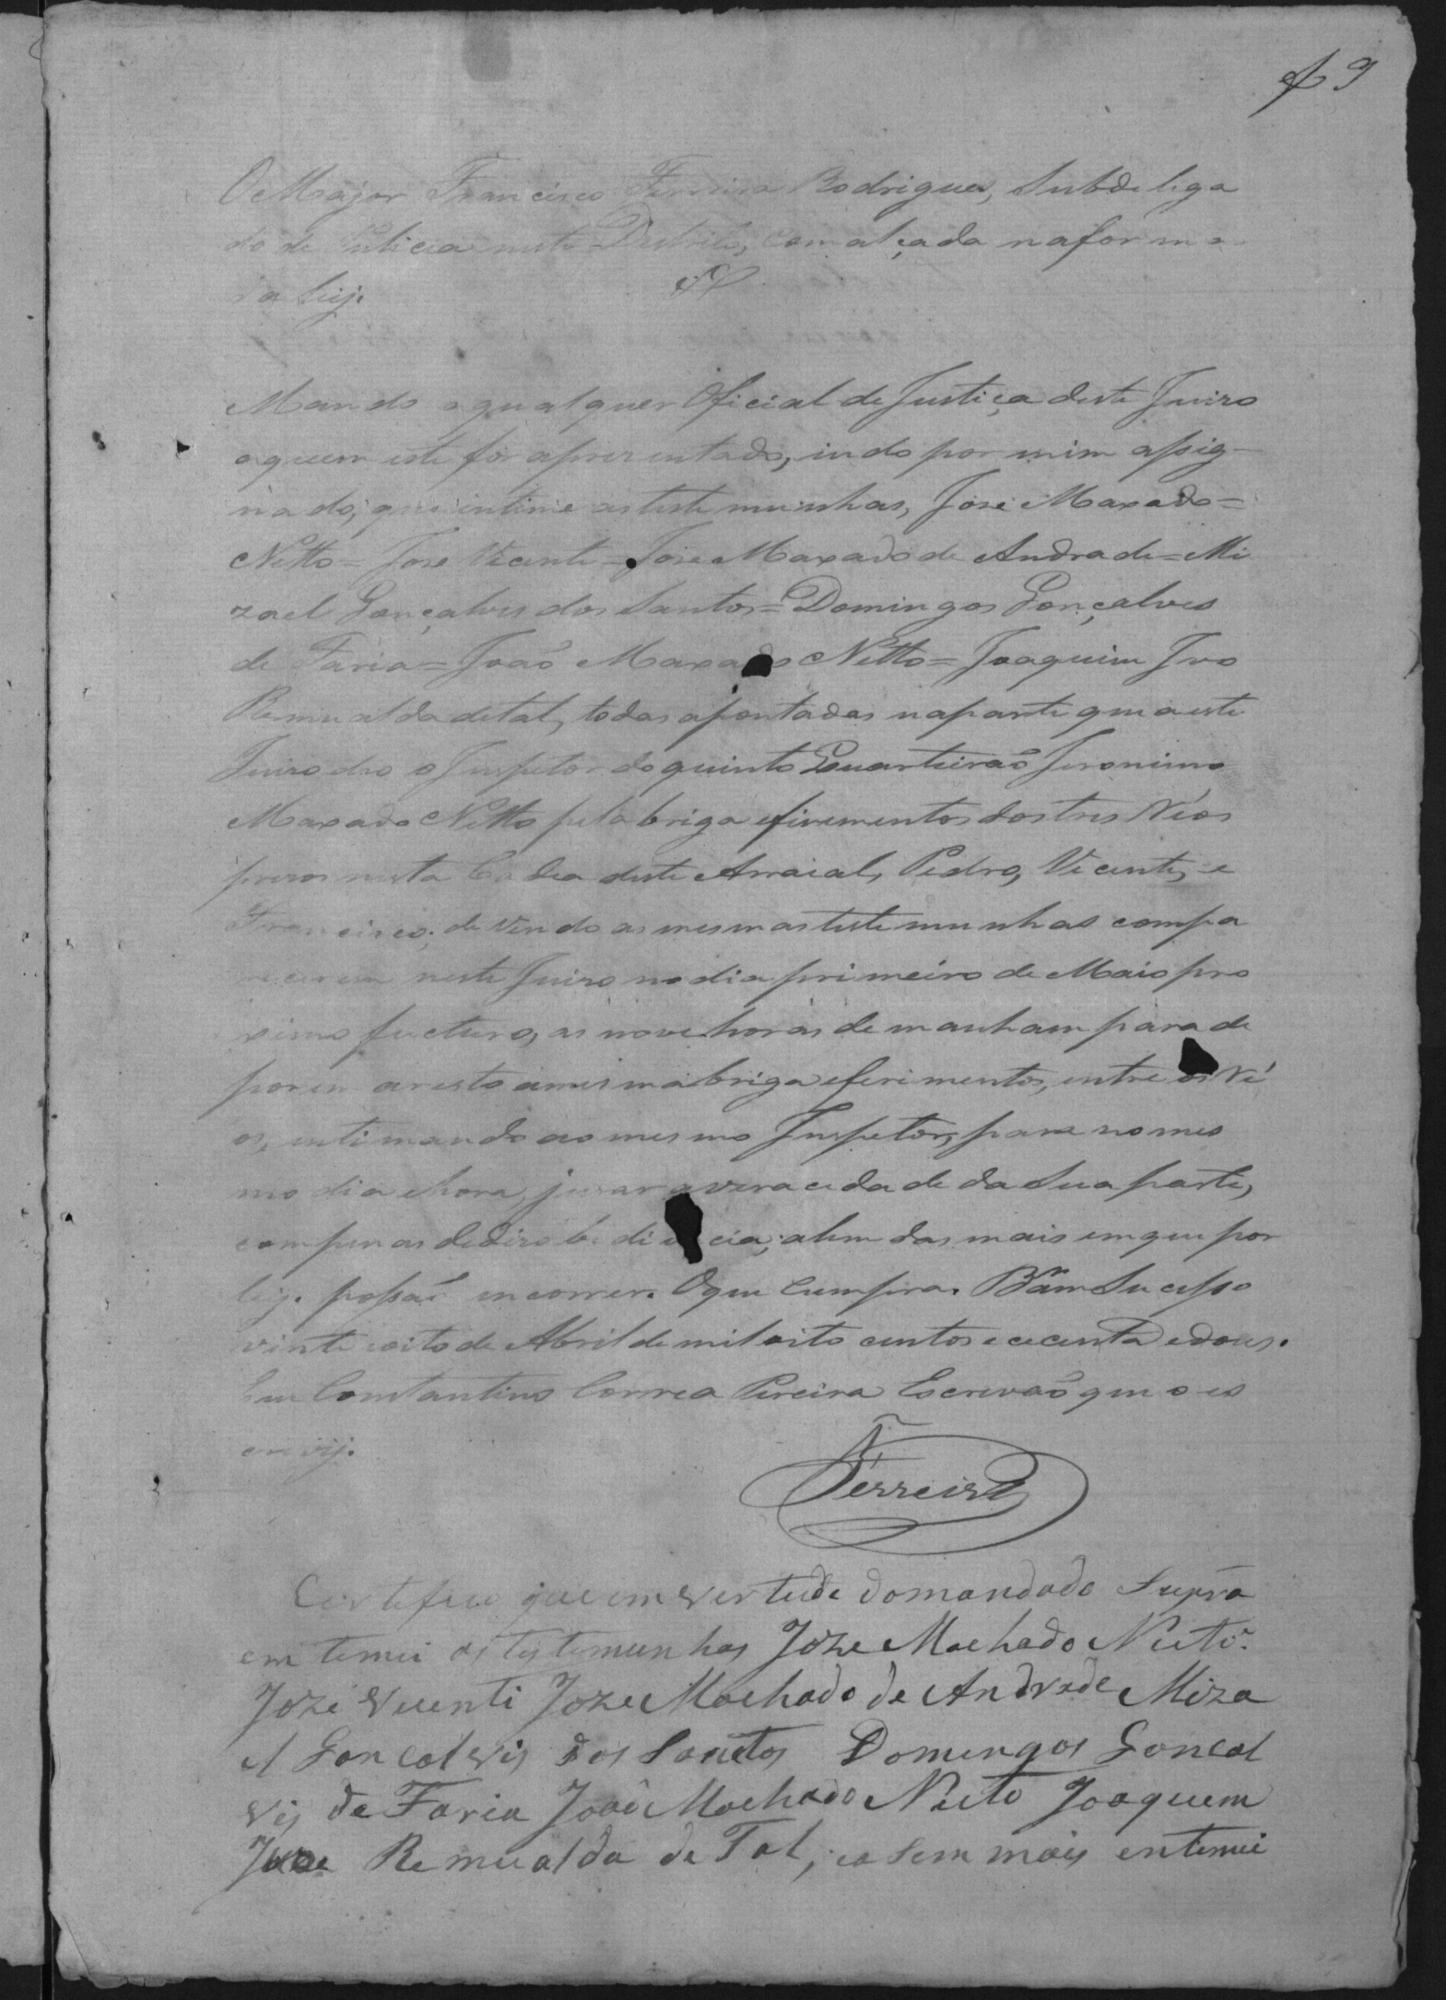 f 9
O Major Francisco Ferreira Rodrigues, Subdelega
do de Policia neste Destrito, com alçada na forma
da Leij. &
Mando a qualquer Oficial de Justiça deste Juizo
a quem este for aprezentado, indo por mim assig-
nado, que intime as testemunhas, José Maxado=
Netto= José Vicente= José Maxado de Andrade= Mi
zael Gonçalves dos Santos= Domingos Gonçalves
de Faria= João Maxado Netto= Joaquim Ivo
Remualda de tal, todas apontadas na parte que a este
Juizo deo o Inspetor do quinto Quarteirão Jeronimo
Maxado Netto pela briga e firementos dos tres Réos
prezos nesta Cadea deste Arraial, Pedro, Vicente, e
Francisco, devendo as mesmas testemunhas compa
recerem neste Juizo no dia primeiro de Maio pro
ximo fucturo, as nove horas de manham para de
porem a resto a mesma briga e ferimentos, entre os Ré
os, intimando ao mesmo Inspetor, para no mes
mo dia e hora, jurar a veracedade da Sua parte,
com penas de dezobediencia, alem das mais em que por
Leij. possão encorrer. O que Cumpra. Bom Sucesso
vinte e oito de Abril de mil oito centos e cecenta e dous.
Eu Constantino Correa Pereira Escrevão que o es
crevij.
Ferreira
Certefico que em vertude do mandado Supra
em temei as testemunhas Joze Machado Nieto
Joze Vicenti Joze Machado de Andrade Miza
el Goncalvis dos Santos Domingos Goncal
vis de Faria João Machado Nieto Joaquem
Remualda de Tal, e a sem mais entemei